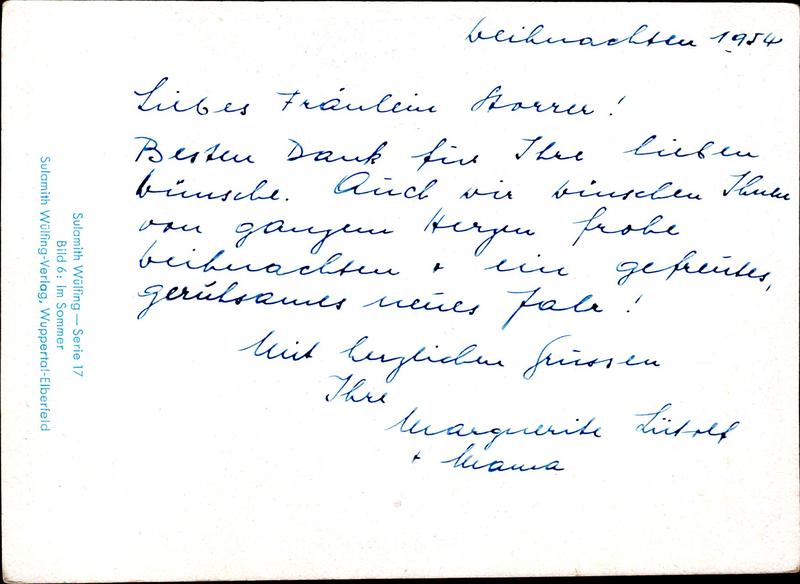 Weihnachten 1954
Liebes Fräulein Storrer!
Besten Dank für Ihre lieben
Wünsche. Auch wir wünschen Ihnen
von ganzem Herzen frohe
Weihnachten + ein gefreutes,
geruhsames neues Jahr!
Mit herzlichen Grüssen
Ihre
Marguerite Lütolf
+ Mama
Sulamith Wülfing — Serie 17
Bild 6: Im Sommer
Sulamith Wülfing-Verlag, Wuppertal-Elberfeld